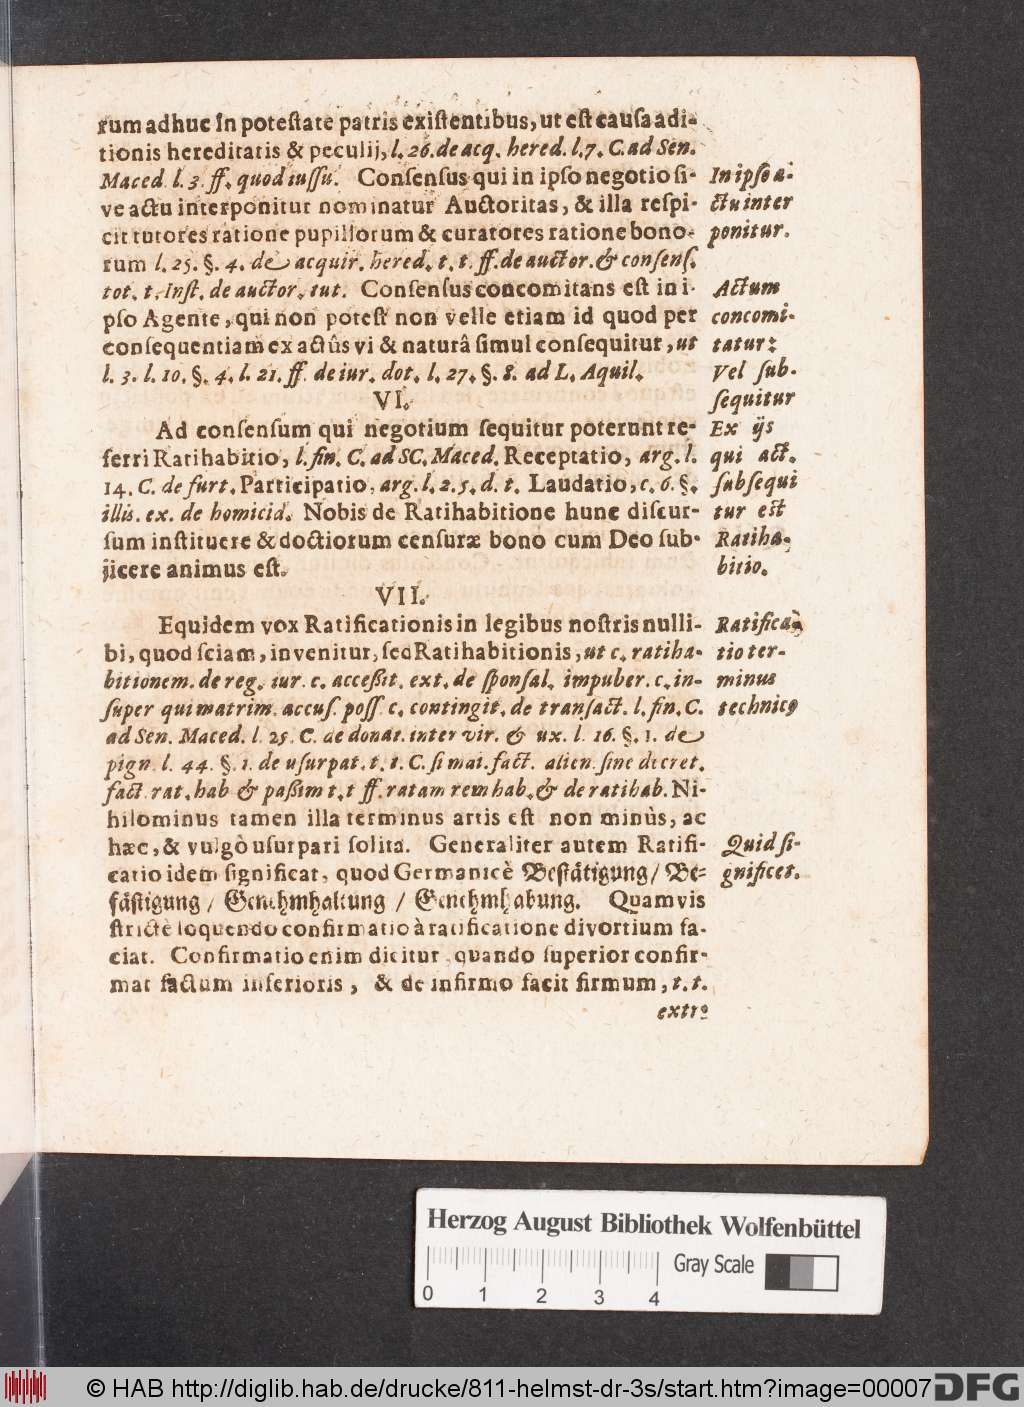 rum adhuc in potestate patris existentibus, ut est causa adi-
tionis hereditatis & peculij, l. 26. de acq. hered. l. 7. C. ad Sen.
Maced. l. 3. ff. quod iussu. Consensus qui in ipso negotio si-
ve actu interponitur nominatur Auctoritas, & illa respi-
cit tutores ratione pupillorum & curatores ratione bono-
rum l. 25. §. 4. de acquir. hered. t. t. ff. de auctor. & consens.
tot. t. Inst. de auctor. tut. Consensus concomitans est in i-
pso Agente, qui non potest non velle etiam id quod per
consequentiam ex actûs vi & naturâ simul consequitur, ut
l. 3. l. 10. §. 4. l. 21. ff. de iur. dot. l. 27. §. 8. ad L. Aquil.
In ipso a-
ctu inter
ponitur.
Actum
concomi-
tatur:
Vel sub-
sequitur
VI.
Ad consensum qui negotium sequitur poterunt re-
ferri Ratihabitio, l. fin. C. ad SC. Maced. Receptatio, arg. l.
14. C. de furt. Participatio, arg. l. 2. 5. d. t. Laudatio, c. 6. §.
illis. ex. de homicid. Nobis de Ratihabitione hunc discur-
sum instituere & doctiorum censuræ bono cum Deo sub-
jicere animus est.
Ex ijs
qui act.
subsequi
tur est
Ratiha-
bitio.
VII.
Equidem vox Ratificationis in legibus nostris nulli-
bi, quod sciam, invenitur, sed Ratihabitionis, ut c. ratiha-
bitionem. de reg. iur. c. acceßit. ext. de sponsal. impuber. c. in-
super qui matrim. accus. poss. c. contingit. de transact. l. fin. C.
ad Sen. Maced. l. 25. C. de donat. inter vir. & ux. l. 16. §. 1. de
pign. l. 44. §. 1. de usurpat. t. t. C. si mai. fact. alien. sine decret.
fact. rat. hab & paßim t. t ff. ratam rem hab. & de ratihab. Ni-
hilominus tamen illa terminus artis est non minùs, ac
hæc, & vulgò usurpari solita. Generaliter autem Ratifi-
catio idem significat, quod Germanicè Bestätigung/ Be-
fästigung / Genehmhaltung / Genehmhabung. Quamvis
strictè loquendo confirmatio à ratificatione divortium fa-
ciat. Confirmatio enim dicitur, quando superior confir-
mat factum inferioris, & de infirmo facit firmum, t. t.
extr.
Ratifica-
tio ter-
minus
technic9
Quid si-
gnificet.
Herzog August Bibliothek Wolfenbüttel
Gray Scale
0 1 2 3 4
© HAB http://diglib.hab.de/drucke/811-helmst-dr-3s/start.htm?image=00007
DFG